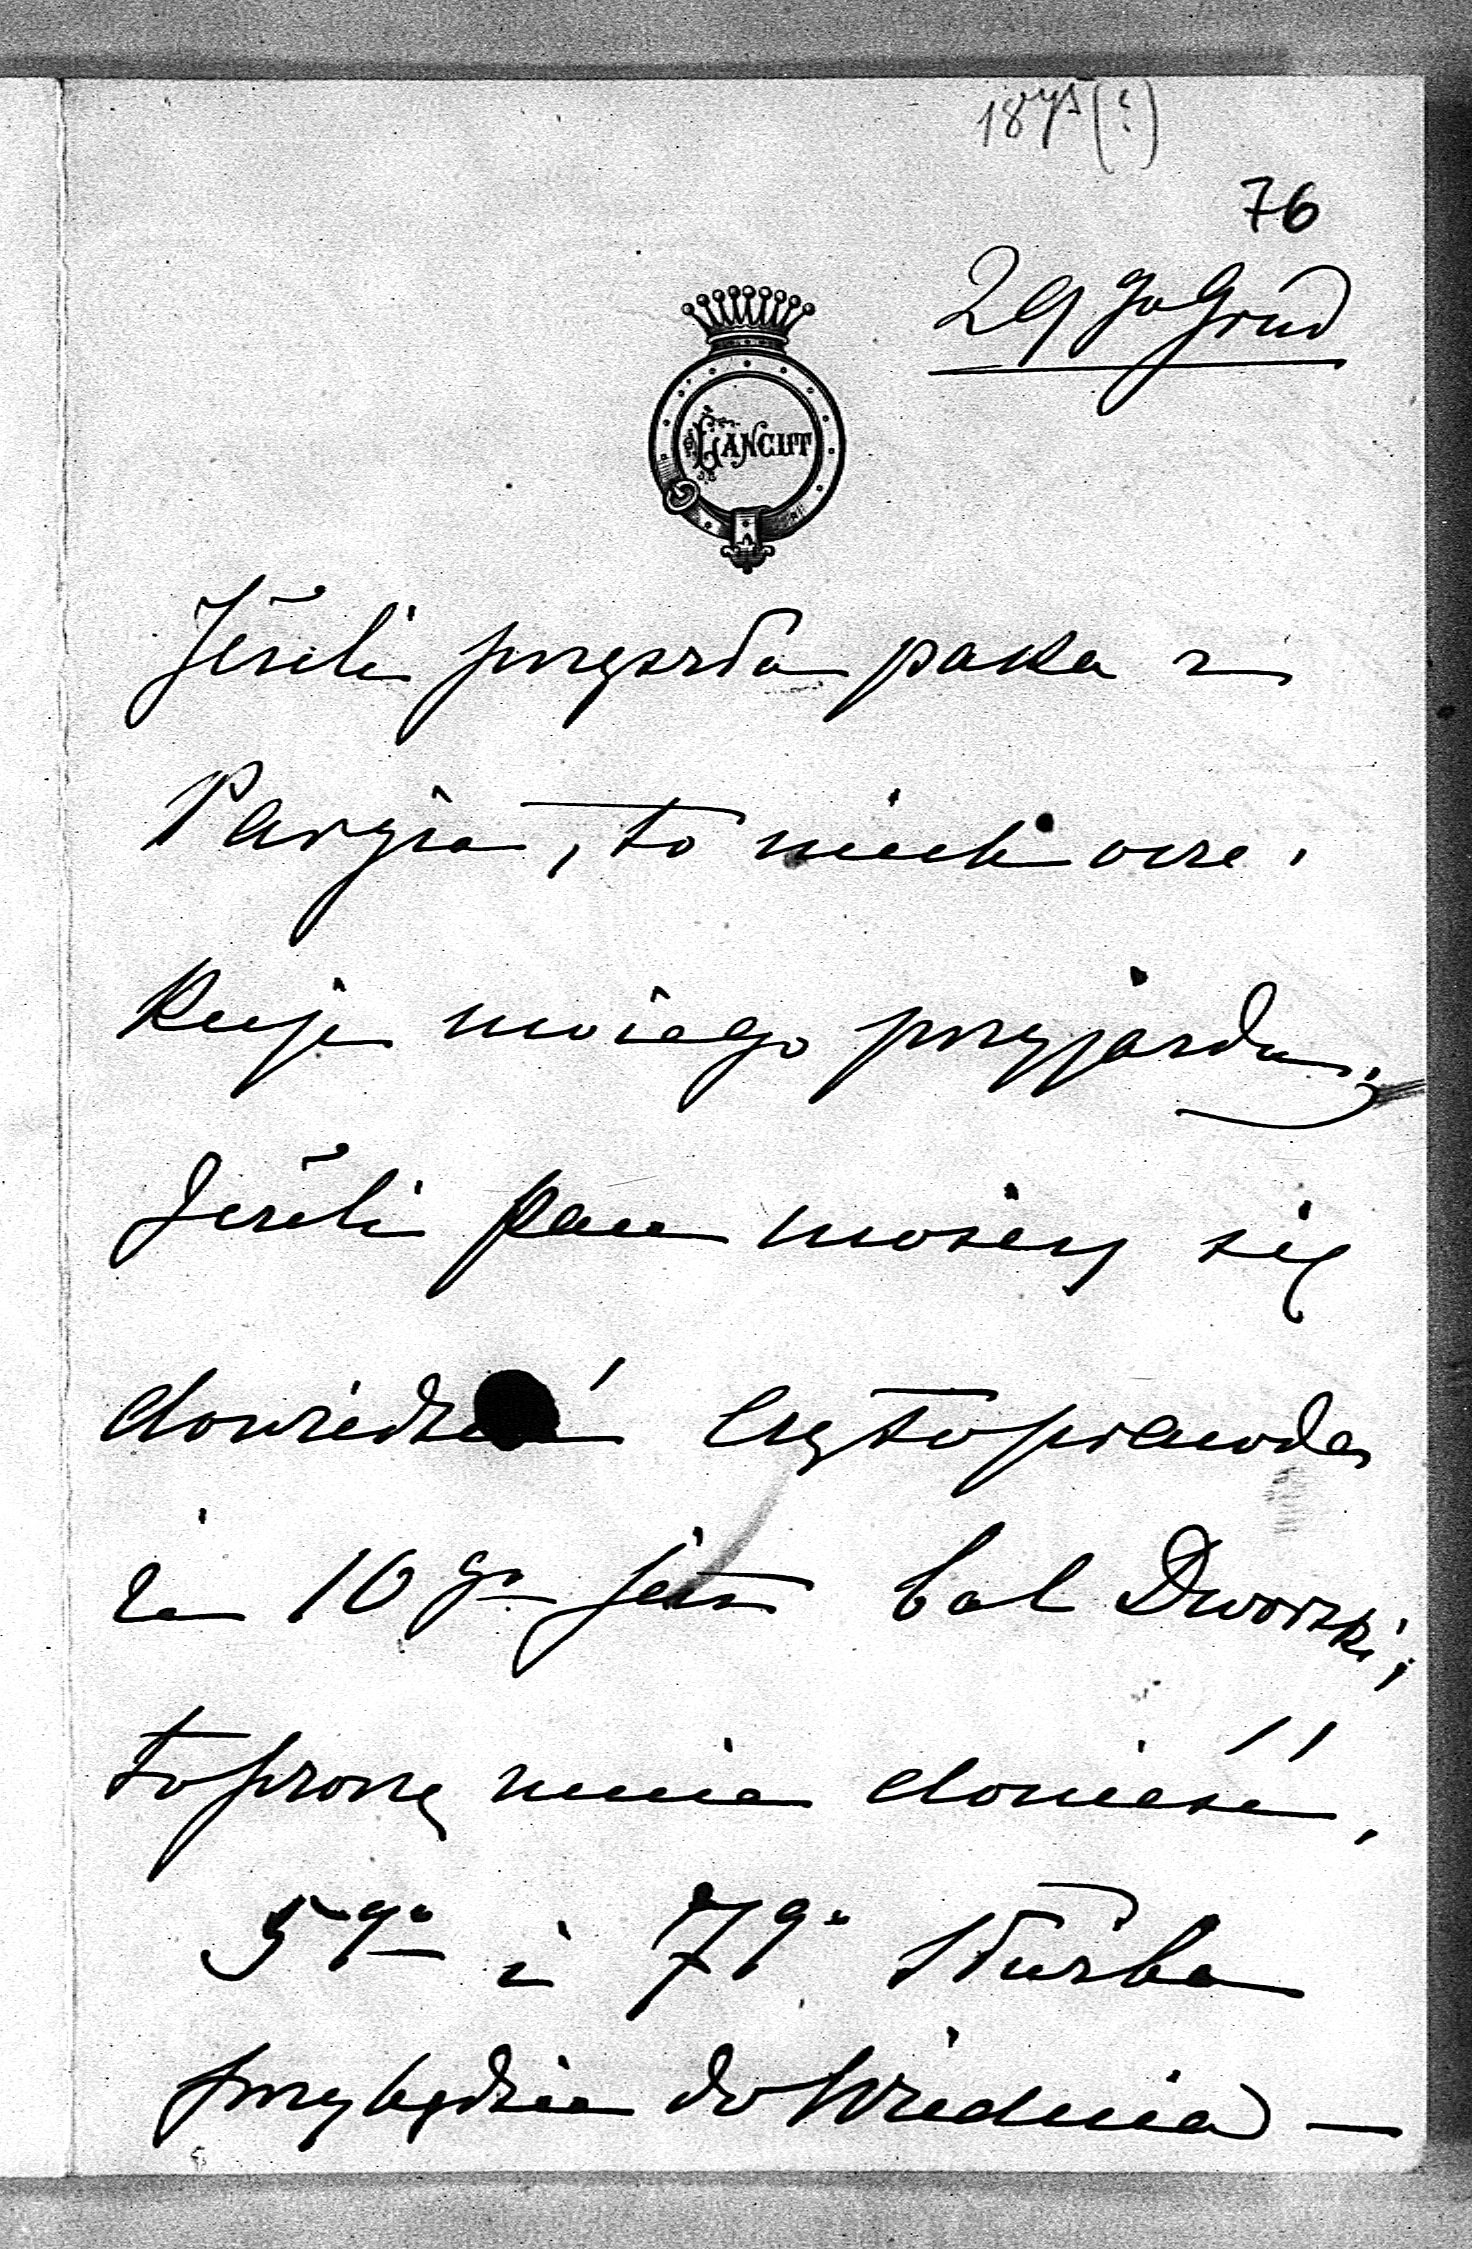 1875(?)
76
29go Grud
ŁAŃCUT
Jeżeli przyszła paka z
Paryża, to niech ocze-
kuje mojego przyjazdu;
Jeżeli pan możesz się
dowiedzieć czy to prawda
że 10go jest bal Dworski;
to proszę mnie donieść,
5go i 7go służba
przybędzie do Wiednia —